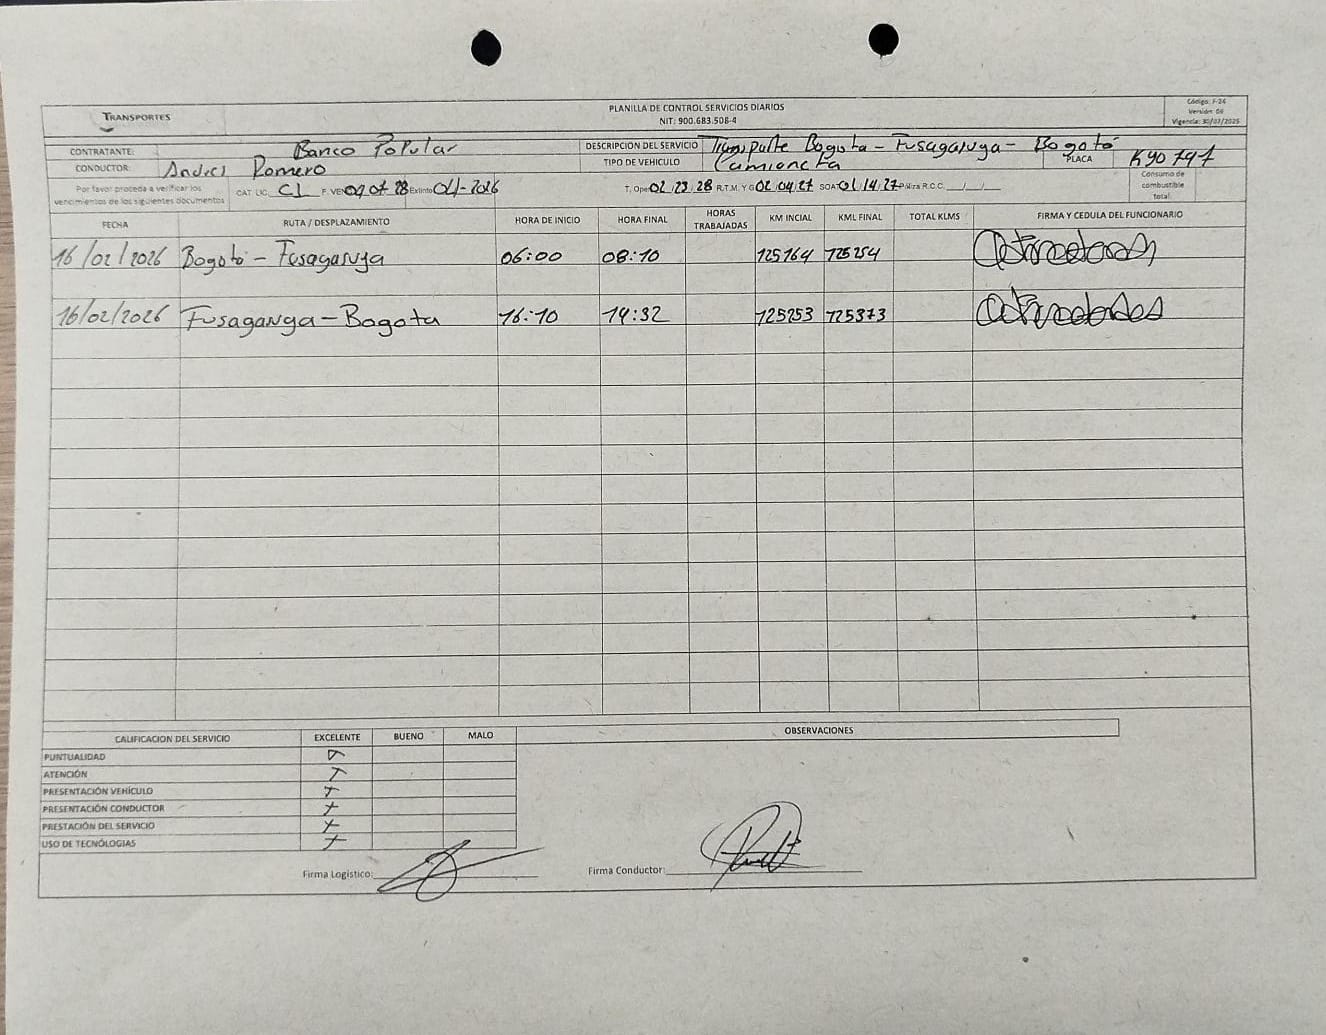 TRANSPORTES
PLANILLA DE CONTROL SERVICIOS DIARIOS
NIT: 900.683.508-4
Código: F-24
Versión: 06
Vigencia: 30/07/2025
CONTRATANTE: Banco Popular
DESCRIPCION DEL SERVICIO Transpulte Bogota - Fusagasuga - Bogotá
CONDUCTOR: Andres Romero
TIPO DE VEHICULO Camioneta
PLACA KYO 797
Por favor proceda a verificar los vencimientos de los siguientes documentos
CAT LIC. C1 F. VEN 09 07 28 Extinto 04-2026
T. Ope 02 23 28 R.T.M. Y G 02 04 27 SOAT 01 14 27 Póliza R.C.C. __/__/__
Consumo de combustible total:
FECHA RUTA / DESPLAZAMIENTO HORA DE INICIO HORA FINAL HORAS TRABAJADAS KM INCIAL KML FINAL TOTAL KLMS FIRMA Y CEDULA DEL FUNCIONARIO
16/02/2026 Bogotá - Fusaganga 06:00 08:10 125164 125254
16/02/2026 Fusaganga - Bogota 16:10 19:32 125253 125373
CALIFICACION DEL SERVICIO EXCELENTE BUENO MALO
OBSERVACIONES
PUNTUALIDAD X
ATENCIÓN X
PRESENTACIÓN VEHÍCULO X
PRESENTACIÓN CONDUCTOR X
PRESTACIÓN DEL SERVICIO X
USO DE TECNÓLOGIAS X
Firma Logistico:
Firma Conductor: